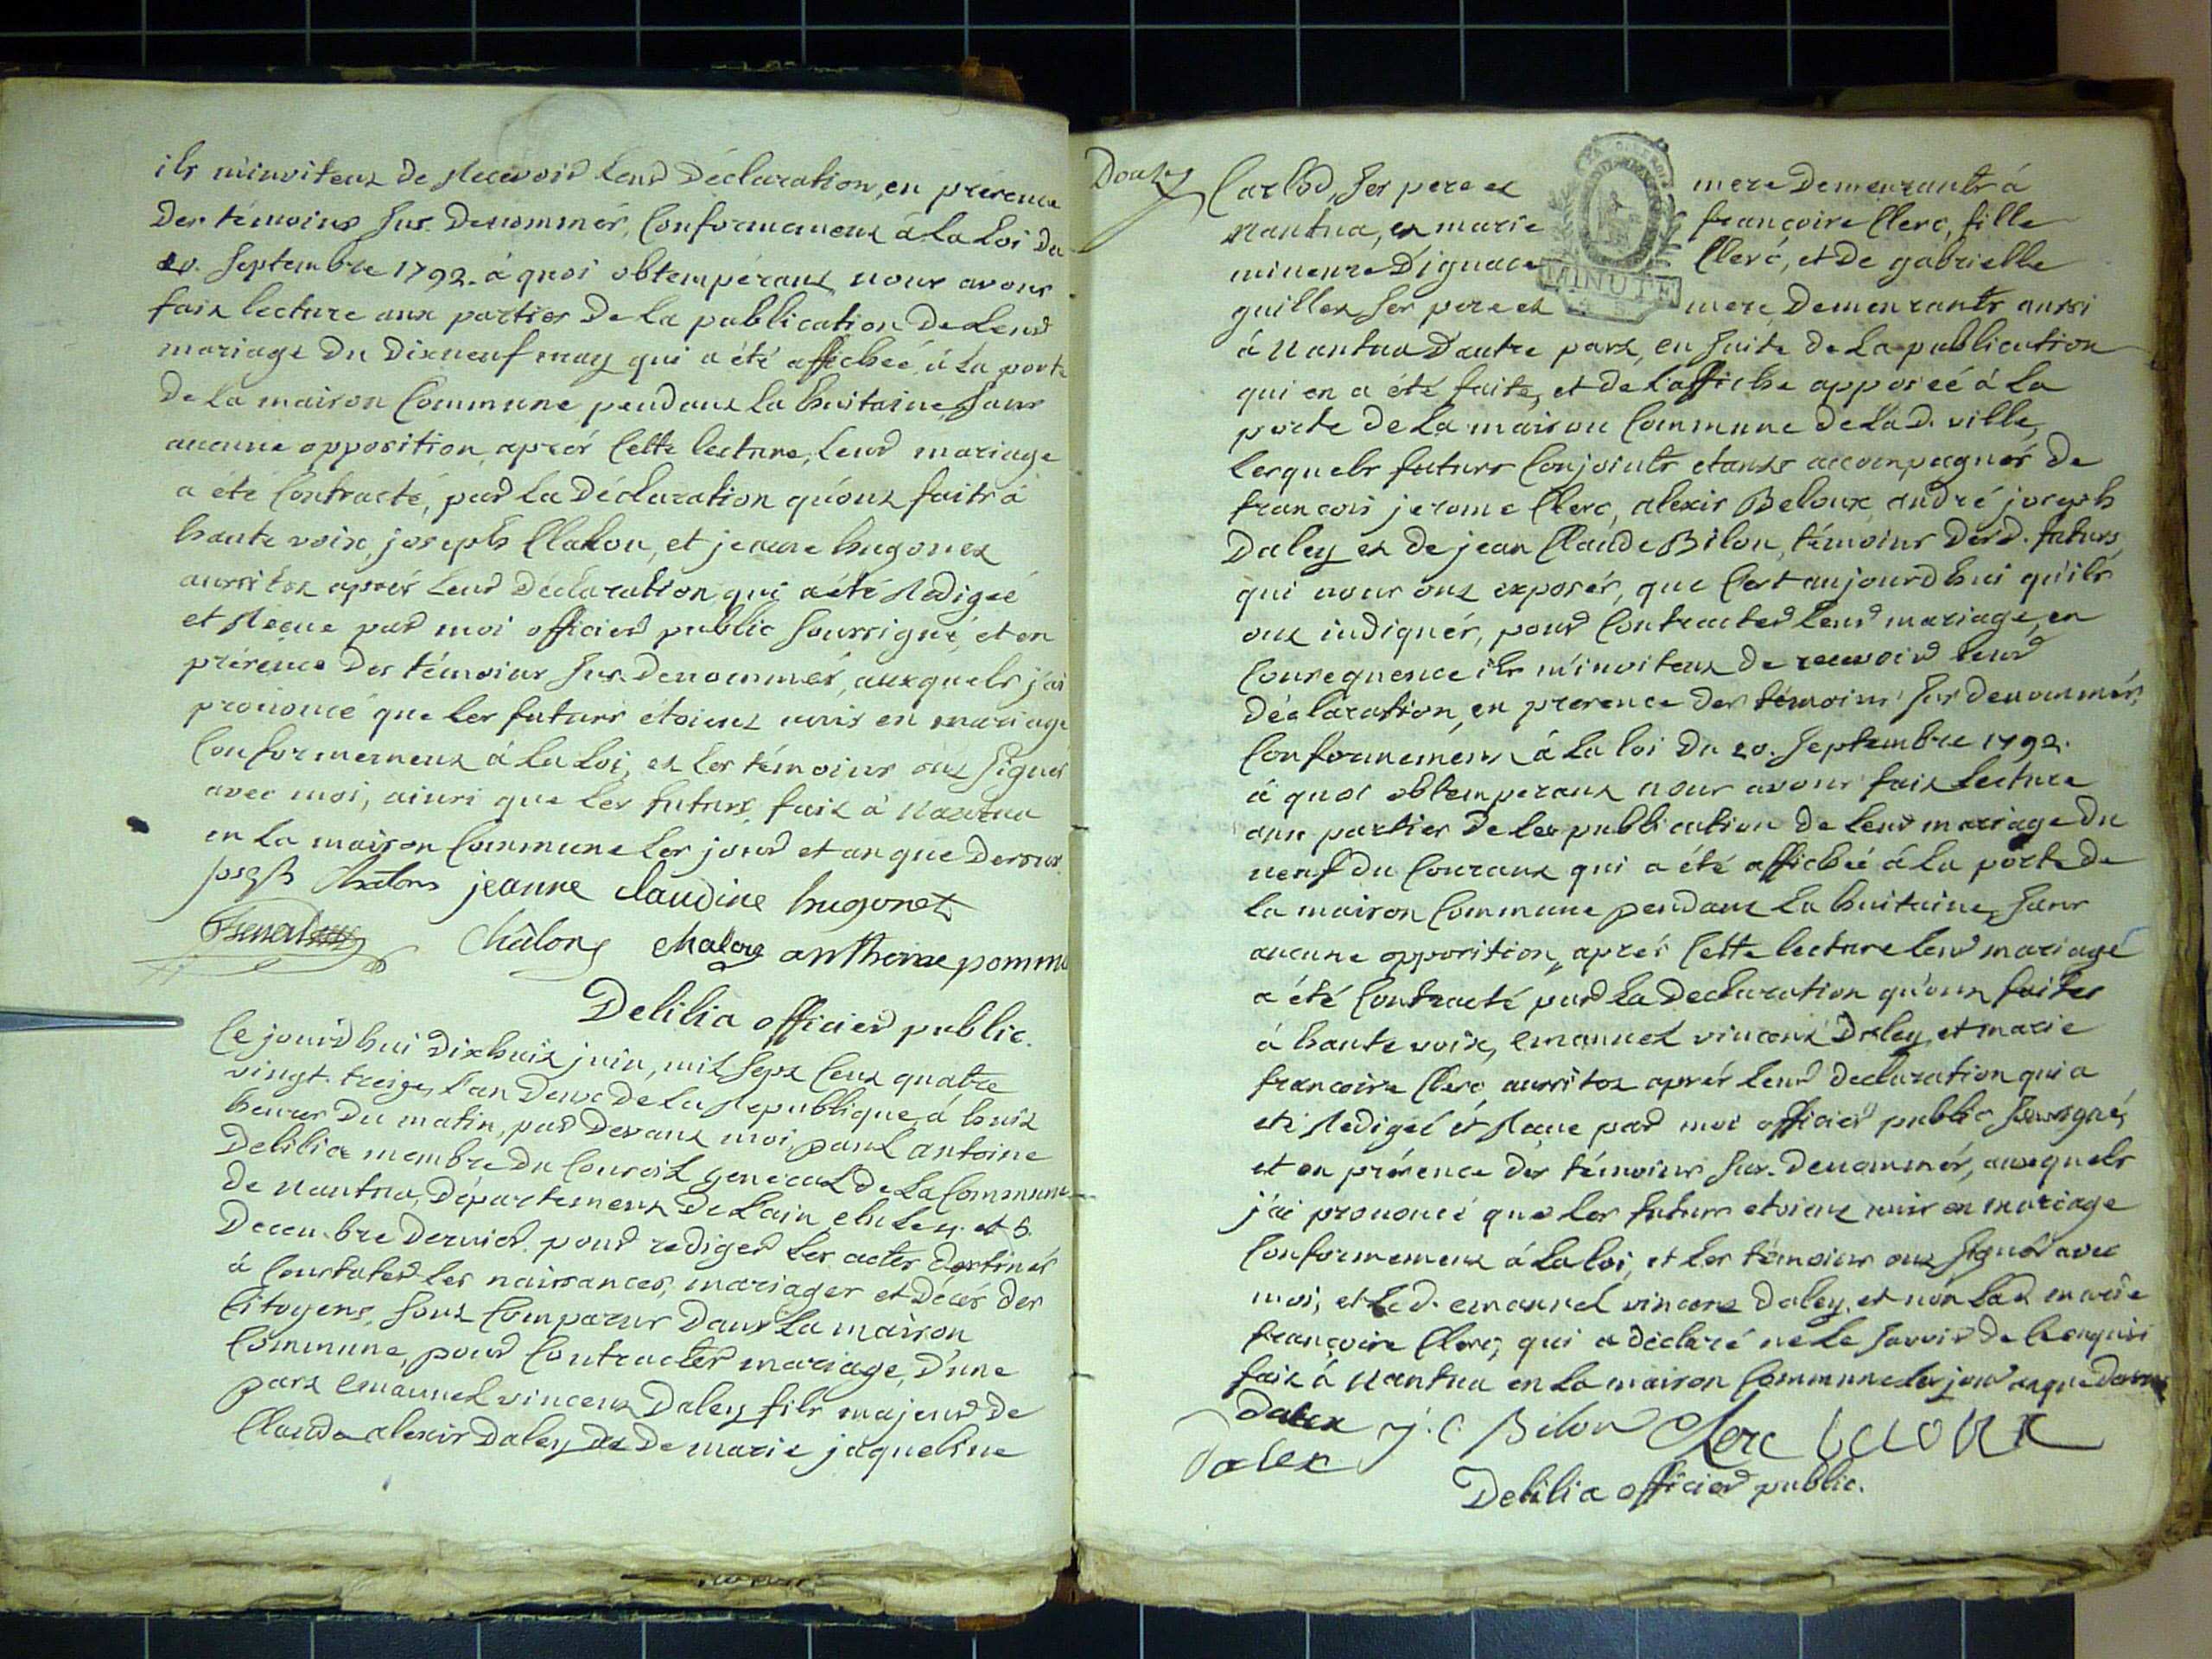 ils m'invitent de Recevoir leur Déclaration, en présence
Des témoins sus. Denommés, Conformement à la Loi Du
20. Septembre 1792. à quoi obtempérant, nous avons
fait lecture aux parties De la publication De leur
mariage Du Dixneuf may qui a été affichée, à la porte
De la maison Commune, pendant la huitaine, sans
aucune opposition, après Cette lecture, leur mariage
a été Contracté, par la Déclaration qu'ont faits à
haute voix, joseph Chalon, et jeanne hugonet
aussitot après leur Déclaration, qui a été Redigée
et Reçue par moi officier public soussigné, et en
présence Des témoins sus. Denommés, auxquels j'ai
prononcé que les futurs étoient unis en mariage
Conformement à la Loi, et les témoins ont signés
avec moi, ainsi que les futurs, fait à Nantua
en la maison Commune les jour et an que Dessus
joseph Chalons jeanne claudine hugonet
Châlons chalons anthoine pomm
Delilia officier public.
Ce jourd'hui Dixhuit juin, mil Sept Cent quatre
vingt. treize, l'an Deux De la Republique, à huit
heures Du matin, par Devant moi, paul antoine
Delilia membre Du Conseil general De La Commune
De Nantua, Département De l'ain, elu le 4. et 5.
Decembre Dernier. pour rediger les actes Destinés
à Constater les naissances, mariages et Décés Des
Citoyens, sont Comparus Dans la maison
Commune, pour Contracter mariage, D'une
part Emannel vincent Daley fils majeur De
Claude alexis Daley et De marie jaqueline
Douze
Carlod, ses pere et mere Demeurants à
Nantua, et marie françoise Clerc, fille
mineure D'ignace Clerc, et De gabrielle
MINUTE
guillet ses pere et mere Demeurants aussi
à Nantua D'autre part, en suite De La publication
qui en a été faite, et De l'affiche apposée à La
porte De La maison Commune De Lad. ville,
lesquels futurs Conjoints etants accompagnés De
françois jerome Clerc, alexis Beloux, andré joseph
Daley et De jean Claude Bilon, témoins Desd. futurs
qui nous ont exposés, que C'est aujourd'hui qu'ils
ont indiqués, pour Contracter leur mariage, en
Consequence ils m'invitent De recevoir leur
Déclaration, en presence Des témoins sus Denommés,
Conformement à La loi Du 20. Septembre 1792.
à quoi obtemperant nous avons fait Lecture
aux parties De la publication De leur mariage Du
neuf Du Courant qui a été affichée à La porte De
la maison Commune pendant La huitaine, sans
aucune opposition, après Cette lecture leur mariage
a été Contracté par La Declaration qu'ont faites
à haute voix, Emannel vincent Daley, et marie
francoise Clerc, aussitot après leur declaration qui a
eté Redigée et Reçue par moi officier public soussigné,
et en présence Des témoins sus. Denommés, auxquels
j'ai prononcé que les futurs etoient unis en mariage
Conformement à La loi, et les témoins ont signés avec
moi, et Led. emannel vincent Daley, et non Lad. marie
françoise Clerc, qui a déclaré ne le savoir De Ce enquise
fait à Nantua en La maison Commune les jour et an que Dessus
Dalex j. C. Bilon Clerc beloux
Dalex
Delilia officier public.